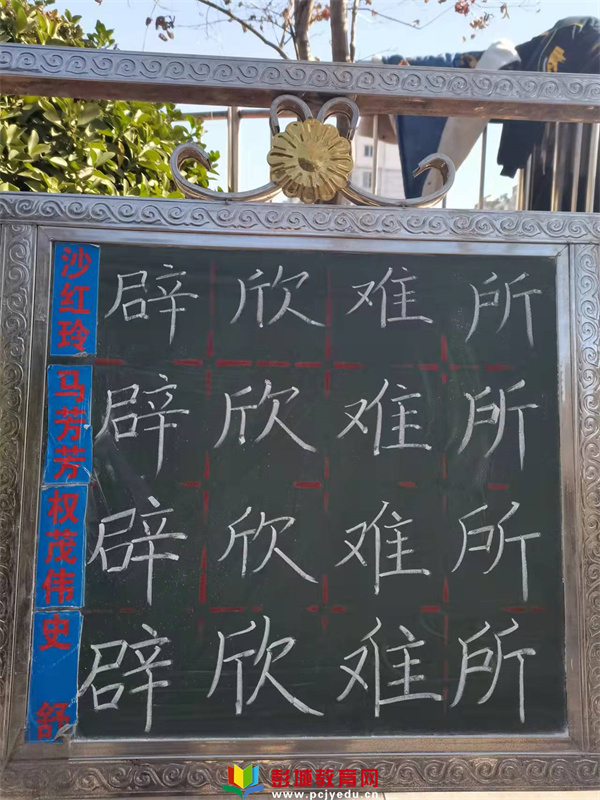 沙红玲 辟 欣 难 所
马芳芳 辟 欣 难 所
权茂伟 辟 欣 难 所
史舒 辟 欣 难 所
彭城教育网
www.pcjyedu.cn